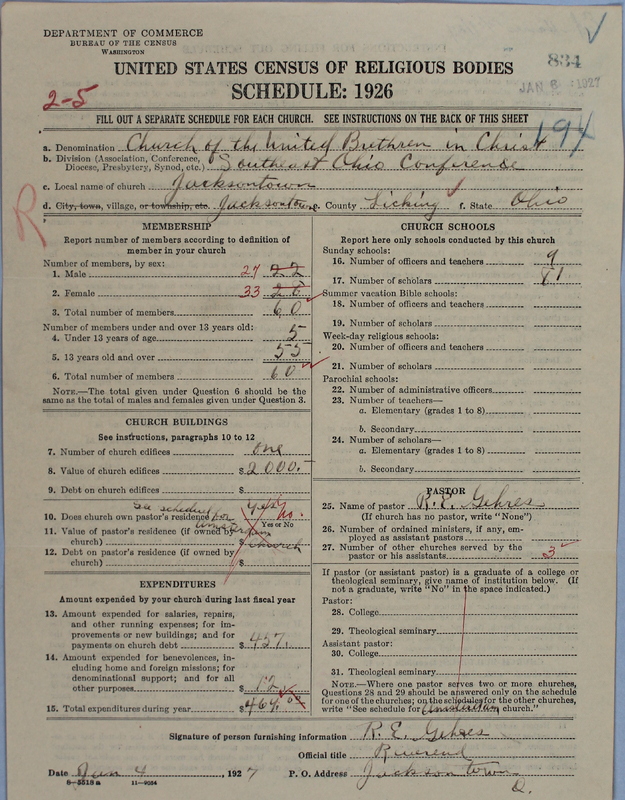 DEPARTMENT OF COMMERCE
BUREAU OF THE CENSUS
WASHINGTON
834
JAN 8 1927
UNITED STATES CENSUS OF RELIGIOUS BODIES
SCHEDULE: 1926
2-5
FILL OUT A SEPARATE SCHEDULE FOR EACH CHURCH. SEE INSTRUCTIONS ON THE BACK OF THIS SHEET
194
a. Denomination Church of the United Brethren in Christ
b. Division (Association, Conference, Diocese, Presbytery, Synod, etc.) Southeast Ohio Conference
c. Local name of church Jacksontown
d. City, town, village, or township, etc. Jacksontown e. County Licking f. State Ohio
R
MEMBERSHIP
Report number of members according to definition of
member in your church
Number of members, by sex:
1. Male 27 22
2. Female 33 28
3. Total number of members 60
Number of members under and over 13 years old:
4. Under 13 years of age 5
5. 13 years old and over 55
6. Total number of members 60
NOTE.—The total given under Question 6 should be
same as the total of males and females given under Question 3.
CHURCH BUILDINGS
See instructions, paragraphs 10 to 12
7. Number of church edifices one
8. Value of church edifices $2000.
9. Debt on church edifices $
See schedule for
10. Does church own pastor's residence? yes no.
Yes or No
11. Value of pastor's residence (if owned by
church) $ church
12. Debt on pastor's residence (if owned by
church) $
EXPENDITURES
Amount expended by your church during last fiscal year
13. Amount expended for salaries, repairs,
and other running expenses; for im-
provements or new buildings; and for
payments on church debt $457.
14. Amount expended for benevolences, in-
cluding home and foreign missions; for
denominational support; and for all
other purposes $12
15. Total expenditures during year $469.00
CHURCH SCHOOLS
Report here only schools conducted by this church
Sunday schools:
16. Number of officers and teachers 9
17. Number of scholars 81
Summer vacation Bible schools:
18. Number of officers and teachers
19. Number of scholars
Week-day religious schools:
20. Number of officers and teachers
21. Number of scholars
Parochial schools:
22. Number of administrative officers
23. Number of teachers—
a. Elementary (grades 1 to 8)
b. Secondary
24. Number of scholars—
a. Elementary (grades 1 to 8)
b. Secondary
PASTOR
25. Name of pastor R. E. Gehres
(If church has no pastor, write "None")
26. Number of ordained ministers, if any, em-
ployed as assistant pastors
27. Number of other churches served by the
pastor or his assistants 3
If pastor (or assistant pastor) is a graduate of a college or
theological seminary, give name of institution below. (If
not a graduate, write "No" in the space indicated.)
Pastor:
28. College
29. Theological seminary
Assistant pastor:
30. College
31. Theological seminary
NOTE.—Where one pastor serves two or more churches,
Questions 28 and 29 should be answered only on the schedule
for one of the churches; on the schedules for the other churches,
write "See schedule for church."
Signature of person furnishing information R. E. Gehres
Official title Reverend
Date Jan 4, 1927 P. O. Address Jacksontown
O.
8-5518a 11-9054